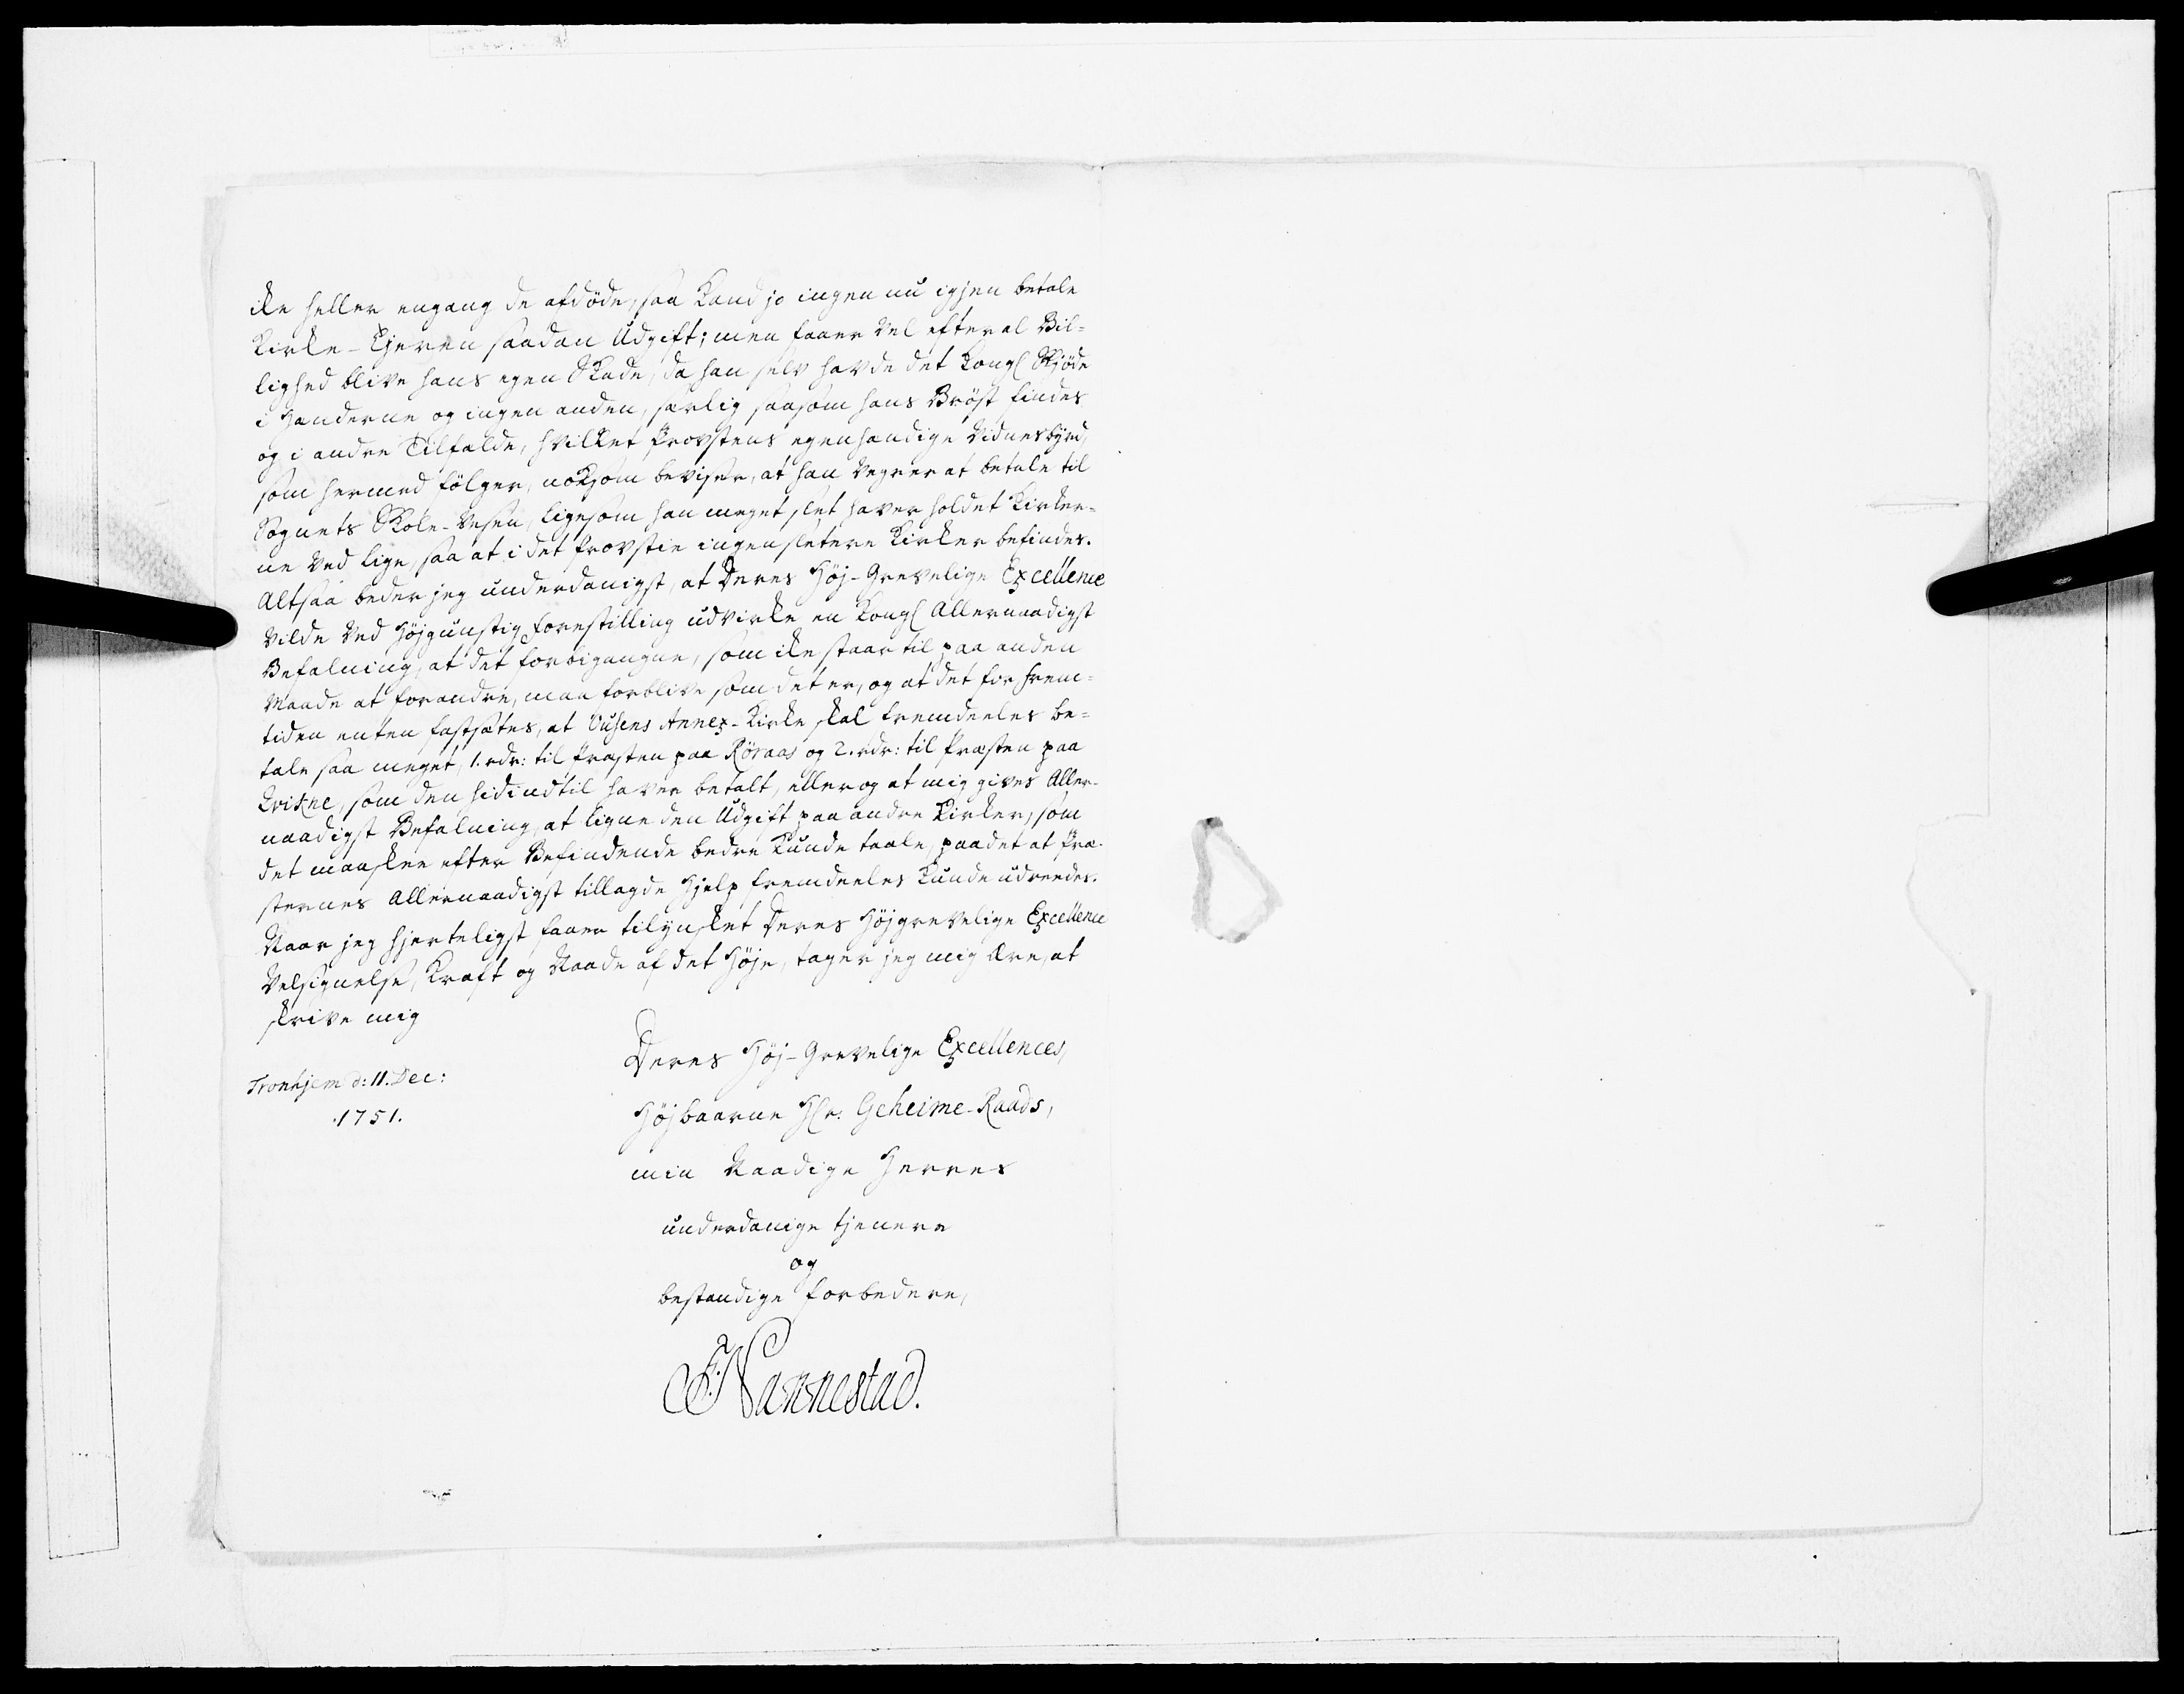 ike heller engang de afdöde, saa kand jo ingen nu igjen betale
Kirke-Ejeren saadan Udgift; men faaer vel efter al Bil-
lighed blive hans egen Skade, da han selv havde det Kongl Skjöde
i Hænderne og ingen anden, særlig saasom hans Bröst findes
og i andre Tilfælde, hvilket Provstens egenhændige Vidnesbyrd,
som hermed fölger, noksom beviser, at han vegrer at betale til
Sognets Skole-Vesen, ligesom han meget slet haver holdet Kirker-
ne ved lige, saa at i det Provstie ingen sletere Kirker befindes.
Altsaa beder jeg underdanigst, at Deres Höj-Grevelige Excellence
vilde ved Höjgunstig forestilling udvirke en Kongl Allernaadigst
Befalning, at det forbigangne, som ike staar til paa anden
Maade at forandre, maa forblive som det er, og at det for Frem-
tiden enten fastsætes, at Ousens Annex-Kirke skal fremdeeles be-
tale saa meget, 1. rdr: til Præsten paa Röraas og 2. rdr: til Præsten paa
Qvikne, som den hidindtil haver betalt, eller og at mig gives Aller-
naadigst Befalning, at ligne den Udgift paa andre Kirker, som
det maaskee efter Befindende bedre kunde taale, paa det at Præ-
sternes Allernaadigst tillagde Hjelp fremdeeles kunde udreedes.
Naar jeg hjerteligst faaer tilynsket Deres Höjgrevelige Excellence
Velsignelse, Kraft og Naade af det Höje, tager jeg mig Ære, at
skrive mig
Deres Höj-Grevelige Excellences,
Tronhjem d: 11. Dec:
Höjbaarne Hr: Geheime-Raads,
1751.
min Naadige Herres
underdanige tjenere
og
bestandige forbedere,
F: Nannestad.